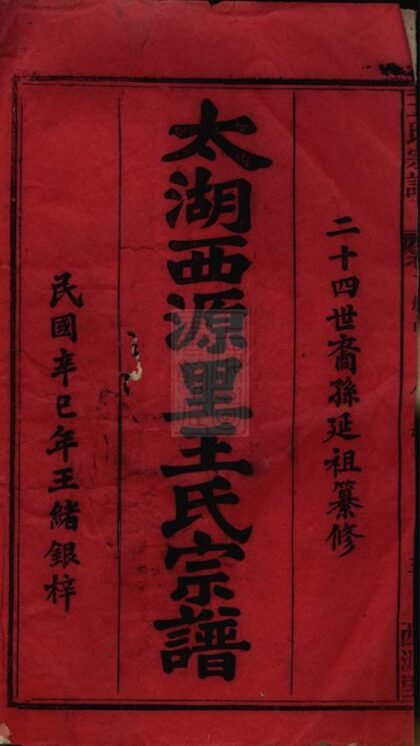 二十四世裔孫延祖纂修
太湖西源里王氏宗譜
民國辛巳年王緒銀梓
王氏宗譜